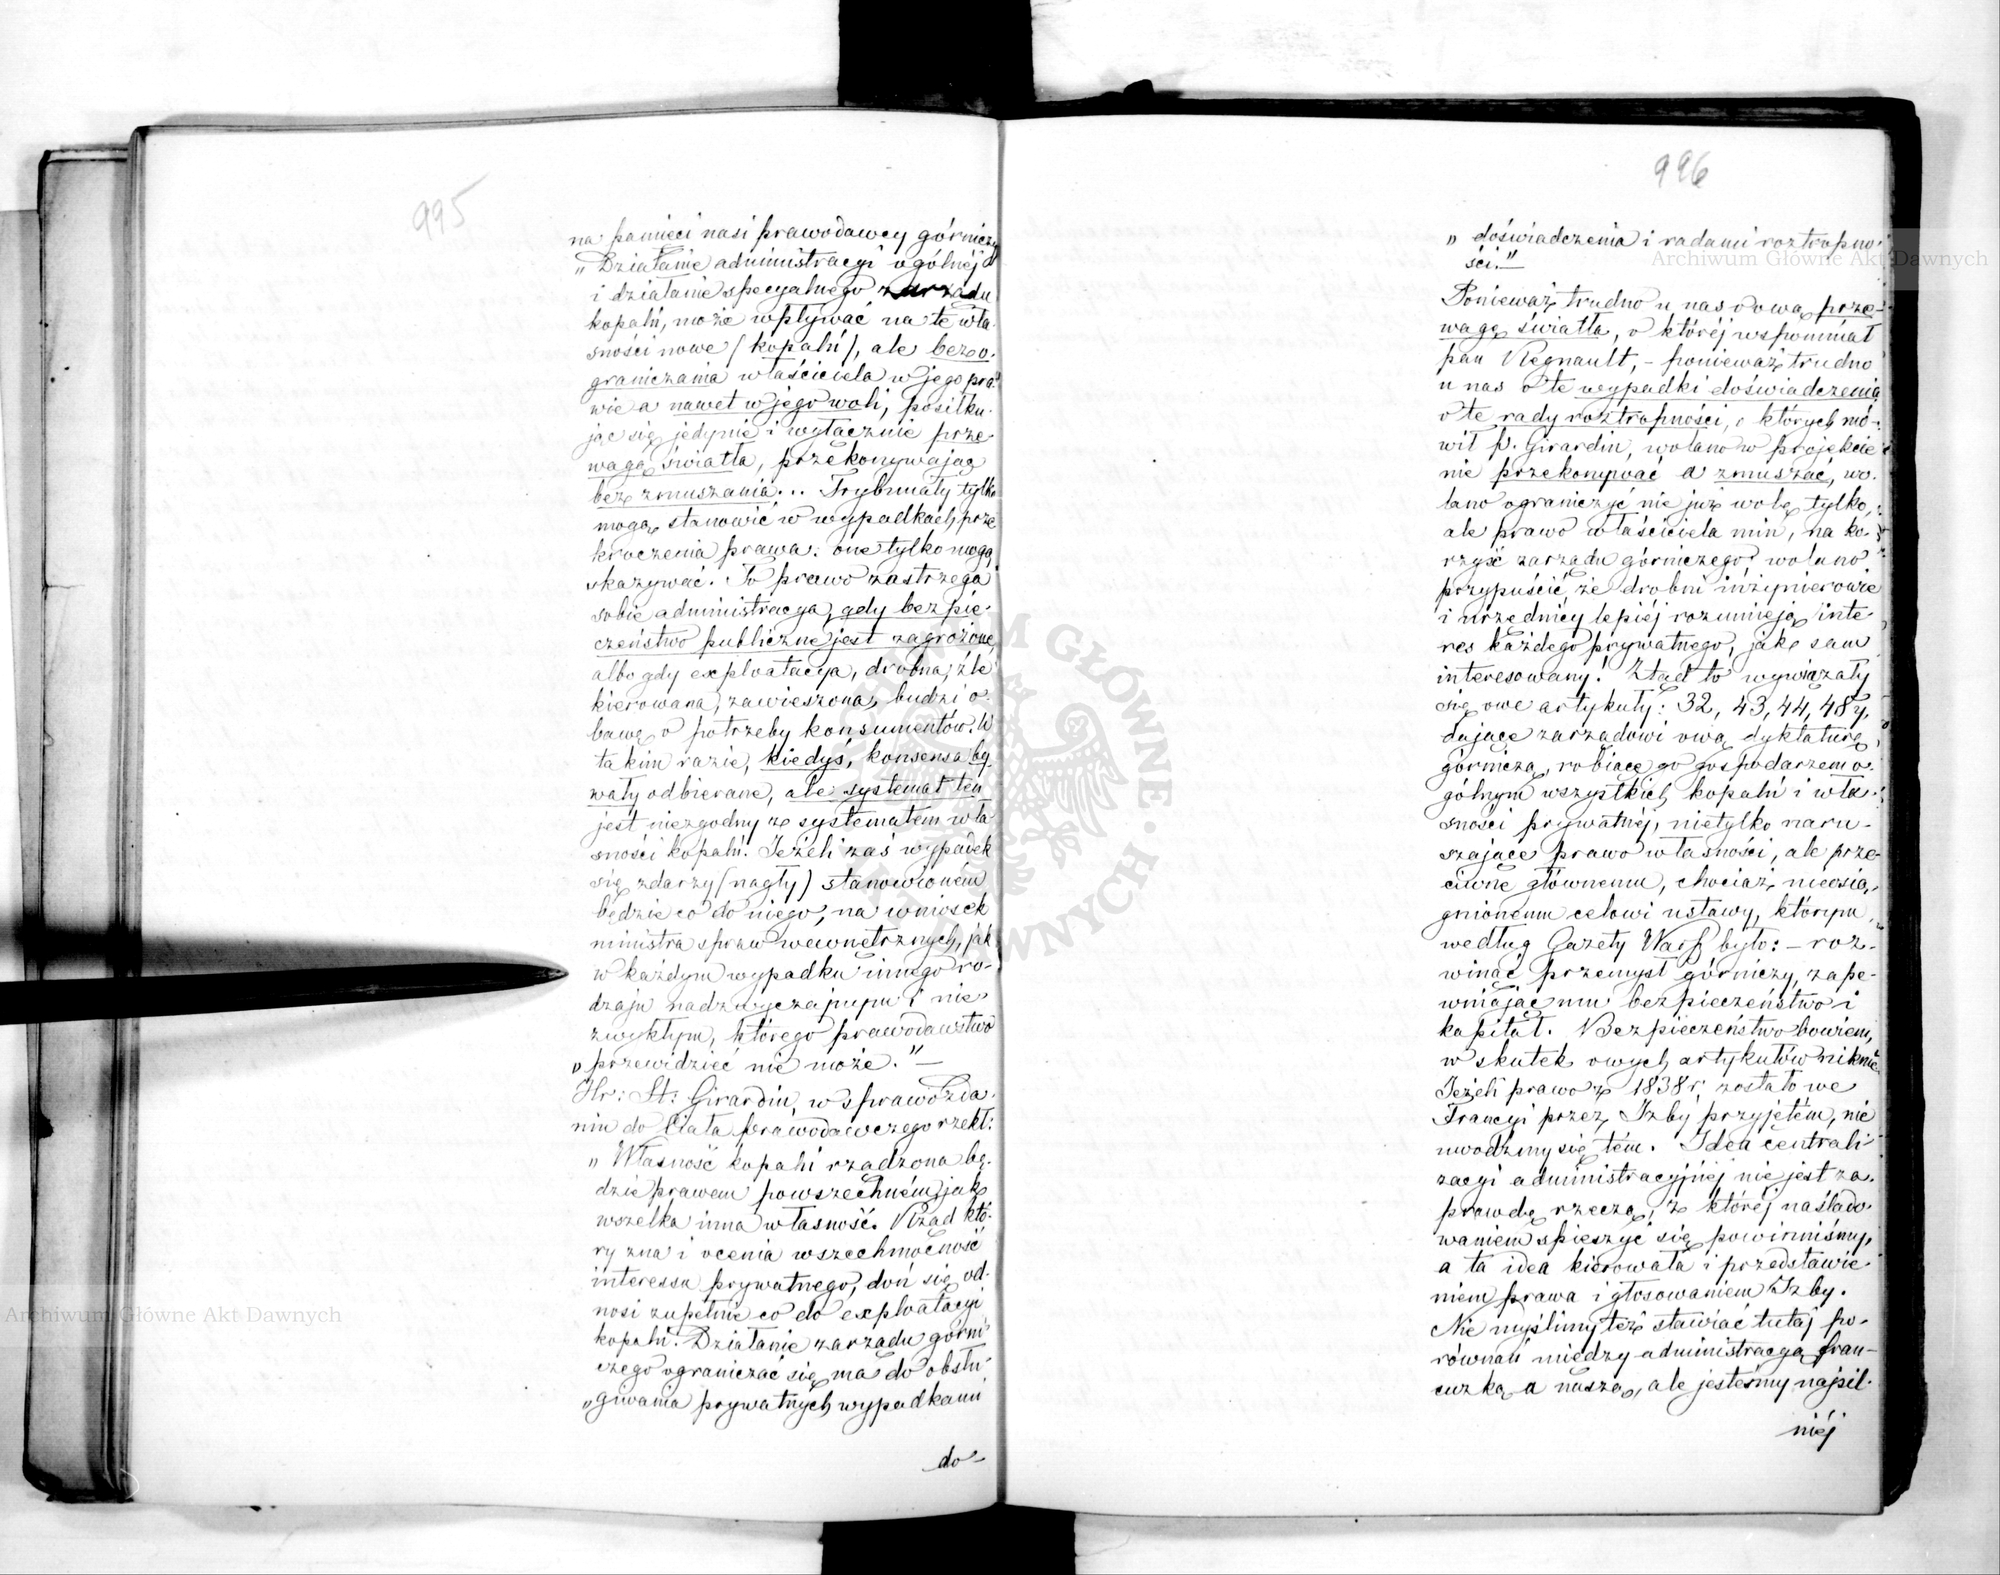 995
na pamięci nasi prawodawcy górniczy
„Działanie administracyi ogólnéj
i działanie specyalnego zarządu
kopalń, może wpływać na te wła-
sności nowe (kopalń), ale bez o-
graniczania właściciela w jego pra-
wie a nawet w jego woli, posiłku-
jąc się jedynie i wyłącznie prze-
wagą światła, przekonywając
bez zmuszania... Trybunały tylko
mogą stanowić w wypadkach prze
kroczenia prawa: one tylko mogą
skazywać. To prawo zastrzega
sobie administracya, gdy bezpie-
czeństwo publiczne jest zagrożone,
albo gdy exploatacya, drobna, źle
kierowana, zawieszona, budzi o-
bawę o potrzeby konsumentów. W
takim razie, kiedyś, konsensa by-
wały odbierane, ale systemat ten
jest niezgodny z systematem wła
sności kopalń. Jeżeli zaś wypadek
się zdarzy (nagły) stanowioném
będzie co do niego, na wniosek
ministra spraw wewnętrznych, jak
w każdym wypadku innego ro-
dzaju nadzwyczajnym i nie-
zwykłym, którego prawodawstwo
„przewidzieć nie może." —
Hr: St: Girardin, w sprawozda-
niu do Ciała prawodawczego rzekł:
„Własność kopalń rządzona bę-
dzie prawem powszechném, jak
wszelka inna własność. Rząd któ-
ry zna i ocenia wszechmocność
interessu prywatnego, doń się od-
nosi zupełnie co do exploatacyi
kopalń. Działanie zarządu górni-
czego ograniczać się ma do obsłu-
„giwania prywatnych wypadkami
do-
996
„doświadczenia i radami roztropno-
ści."—
Ponieważ trudno u nas o ową prze-
wagę światła, o któréj wspomniał
pan Regnault, - ponieważ trudno
u nas o te wypadki doświadczenia
o te rady roztropności, o których mó-
wił p. Girardin, wolano w projekcie
nie przekonywać a zmuszać, wo-
lano ograniczyć nie już wolę tylko,
ale prawo właściciela min, na ko-
rzyść zarządu górniczego, wolano
przypuścić, że drobni inżynierowie
i urzędnicy lepiéj rozumieją inte-
res każdego prywatnego, jak sam
interesowany! Ztąd to wywiązały
się owe artykuły: 32, 43, 44, 48 y,
dające zarządowi ową dyktaturę
górniczą, robiące go gospodarzem o-
gólnym wszystkich kopalń i wła-
sności prywatnéj, nietylko naru-
szające prawo własności, ale prze-
ciwne głównemu, chociaż nieosią-
gnionemu celowi ustawy, którym,
według Gazety Warsz było: — roz-
winąć przemysł górniczy, zape-
wniając mu bezpieczeństwo i
kapitał. Bezpieczeństwo bowiem,
w skutek owych artykułów niknie.
Jeżeli prawo z 1838 r; zostało we
Francyi przez Izby przyjętém, nie
uwodźmy się tém. Idea centrali-
zacyi administracyjnéj nie jest za-
prawdę rzeczą, z któréj naślado-
waniem spieszyć się powinniśmy,
a ta idea kierowała i przedstawie-
niem prawa i głosowaniem Izby.
Nie myślimy też stawiać tutaj po-
równań między administracyą fran-
cuzką a naszą, ale jesteśmy najsil-
niéj
Archiwum Główne Akt Dawnych
Archiwum Główne Akt Dawnych